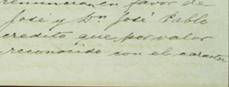 renuncian en favor de
José y Dn José Pablo
credito que por valor
reconocido con el caracter